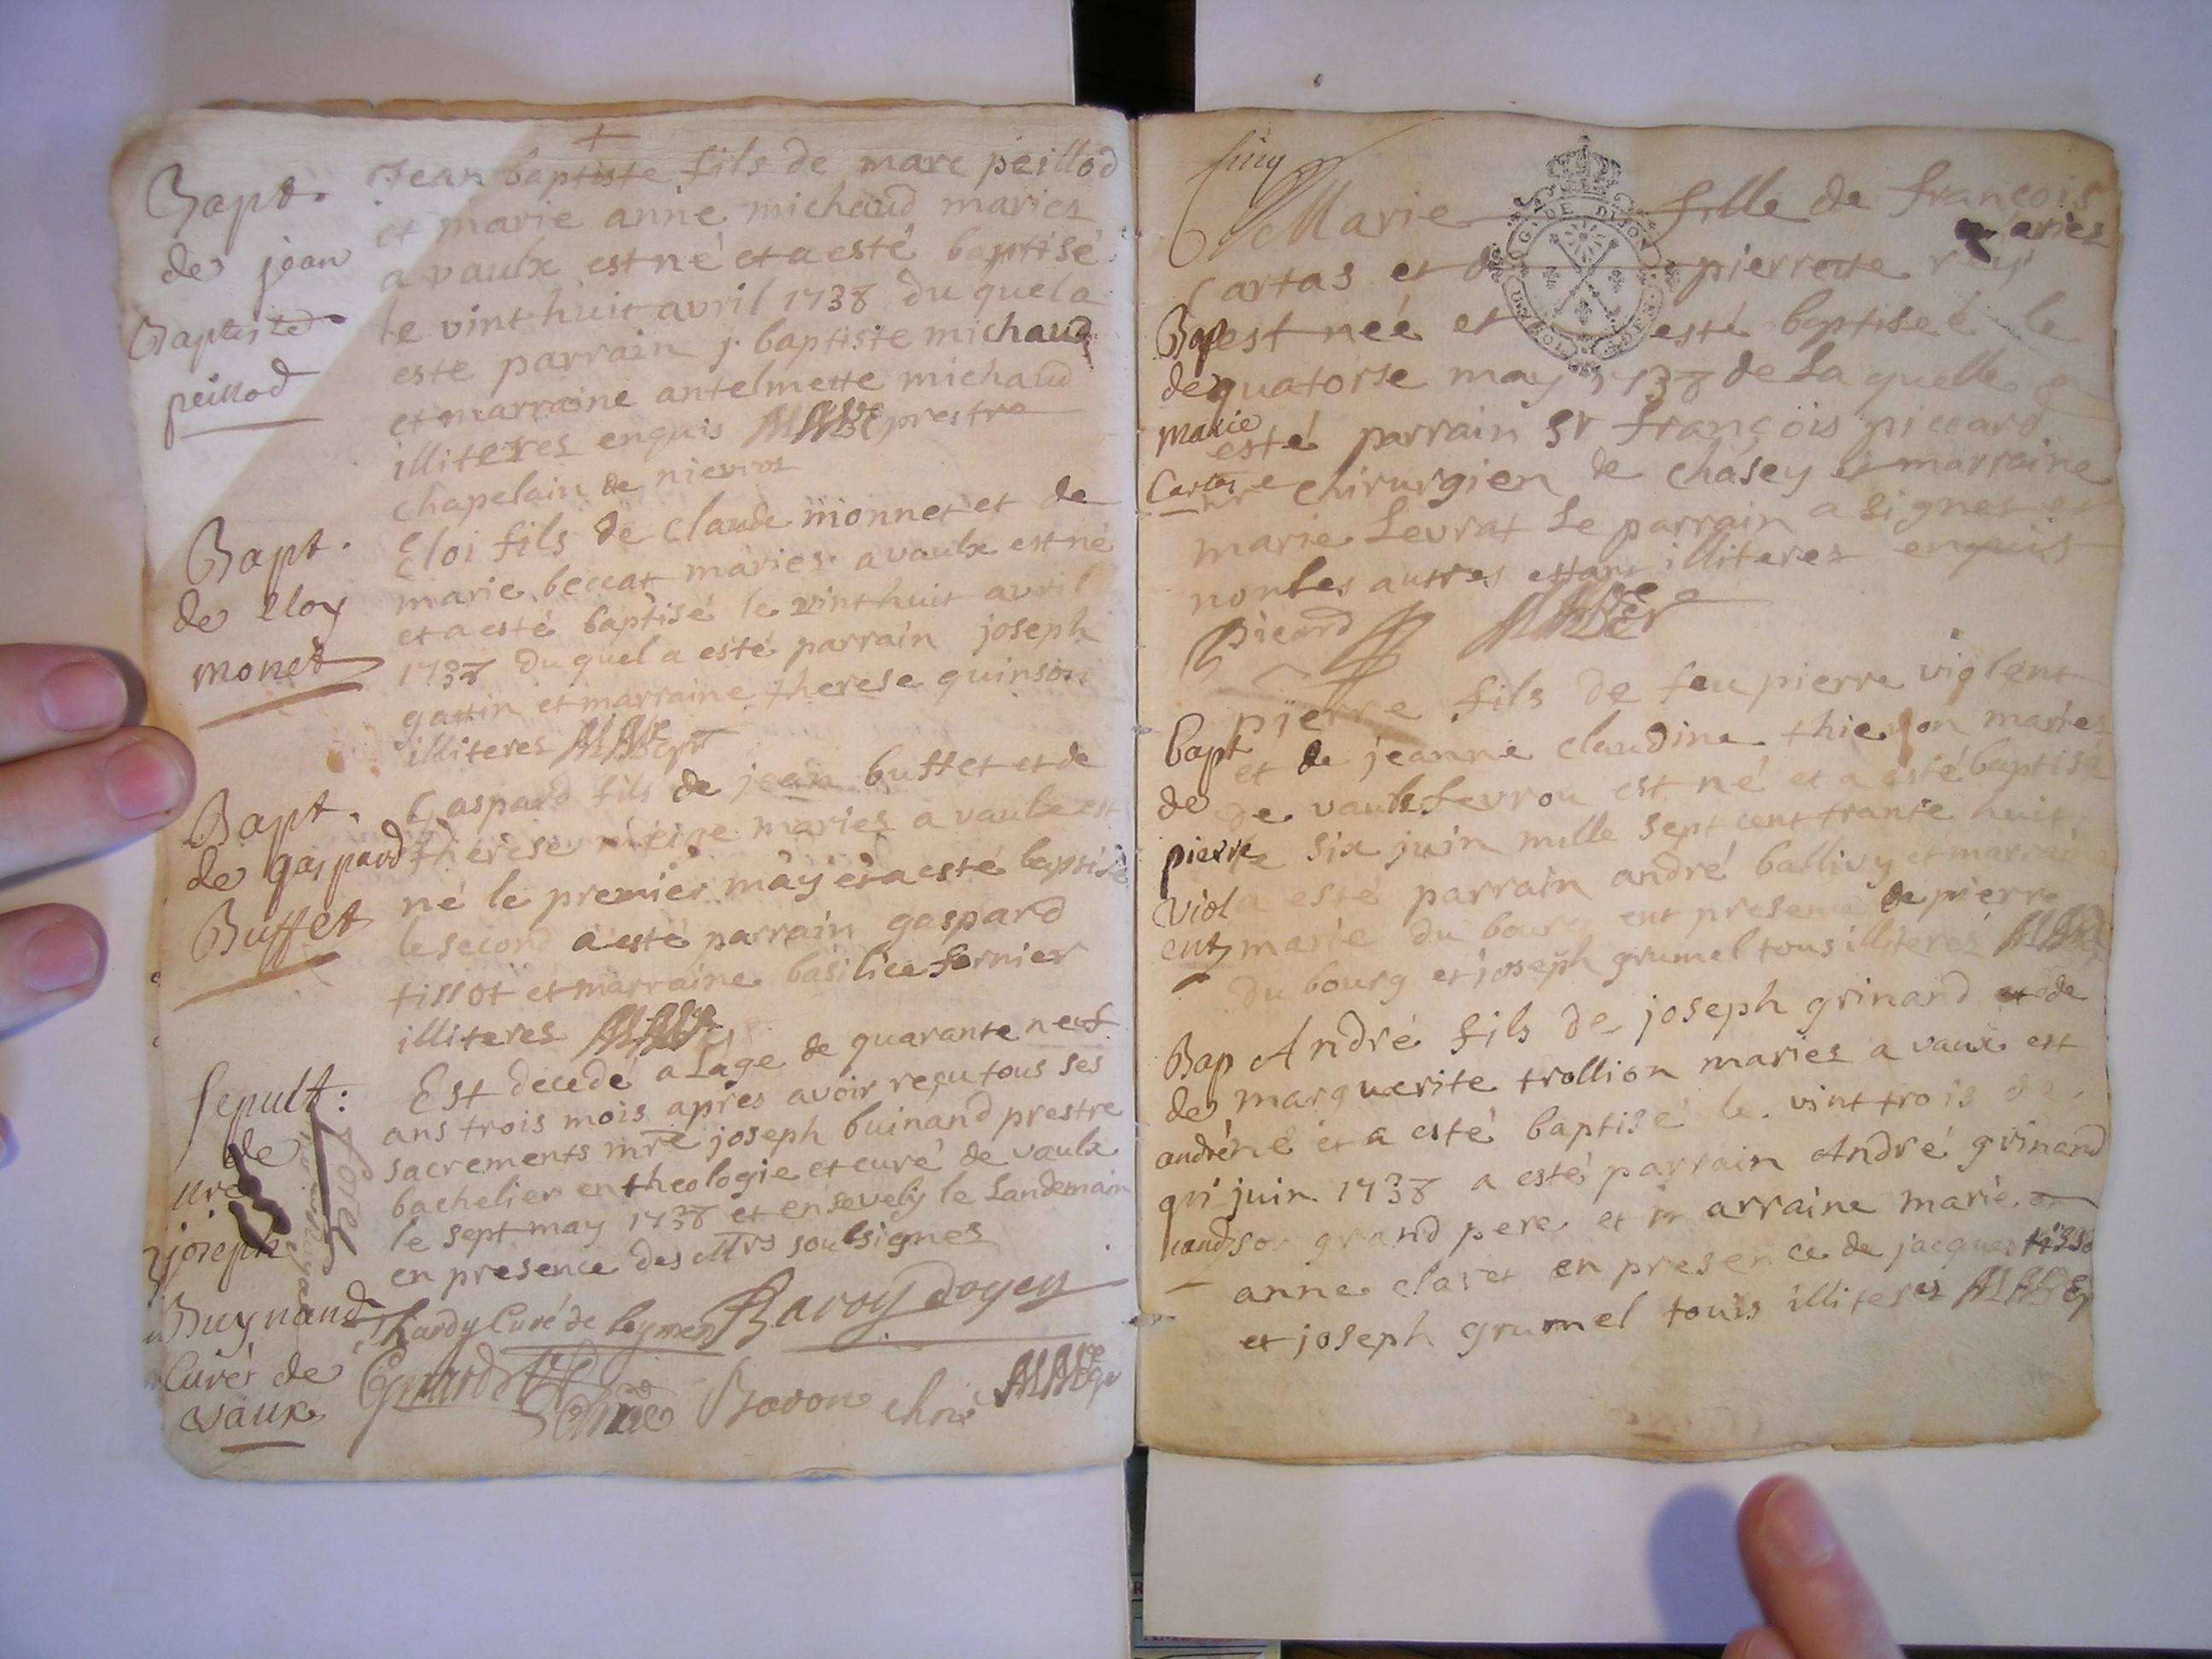 Bapt.
de jean
Baptiste
peillod
Jean baptiste fils de marc peillod
et marie anne michaud maries
a vaulx est né et a esté baptisé
le vint huit avril 1738 du quel a
este parrain j. baptiste michaud
et marraine antelmette michaud
illiteres enquis prestre
chapelain de nievros
Bapt.
de eloy
monet
Eloi fils de claude monnet et de
marie beccat maries a vaulx est né
et a esté baptisé le vint huit avril
1738 du quel a esté parrain joseph
gattin et marraine therese quinson
illiteres
Bapt.
de gaspard
Buffet
Gaspard fils de jean buffet et de
therese maries a vaulx est
né le premier may et a esté baptisé
le second a esté parrain gaspard
tissot et marraine basilice fornier
illiteres
Sepult:
de
joseph
Buynand
Curé de
vaux
Est decedé a Lage de quarante neuf
ans trois mois apres avoir reçu tous ses
sacrements mre joseph buinand prestre
bachelier en theologie et curé de vaulx
le sept may 1738 et ensevely le Landemain
en presence des Mrs soubsignes
hardy Curé de leymen Baroy doyen
Bovon
Marie fille de françois
Cartas et d pierrette rey maries
est née et esté baptiseé le
quatorse may 1738 de La quelle a
esté parrain Sr françois piccard
chirurgien de chasey et marraine
marie Levrat Le parrain a signer et
non les autres estant illiteres enquis
picard
Bap
de
marie
Cartas
pierre fils de feu pierre violent
et de jeanne claudine maries
de vaulx fevrou est né et a esté baptisé
le six juin mille sept cent trante huit
a esté parrain andré ballivy et marraine
marie du bourg ent presence de pierre
du bourg et joseph grumel tous illiteres
bapt
de
pierre
viol
ent
André fils de joseph grinand et de
marguerite trollion maries a vaux est
né et a esté baptisé le vint trois de
juin 1738 a esté parrain André grinand
son grand pere et marraine marie
anne claret en presence de jacques tisso
et joseph grumel tous illiteres
Bap
de
andré
gri
nand